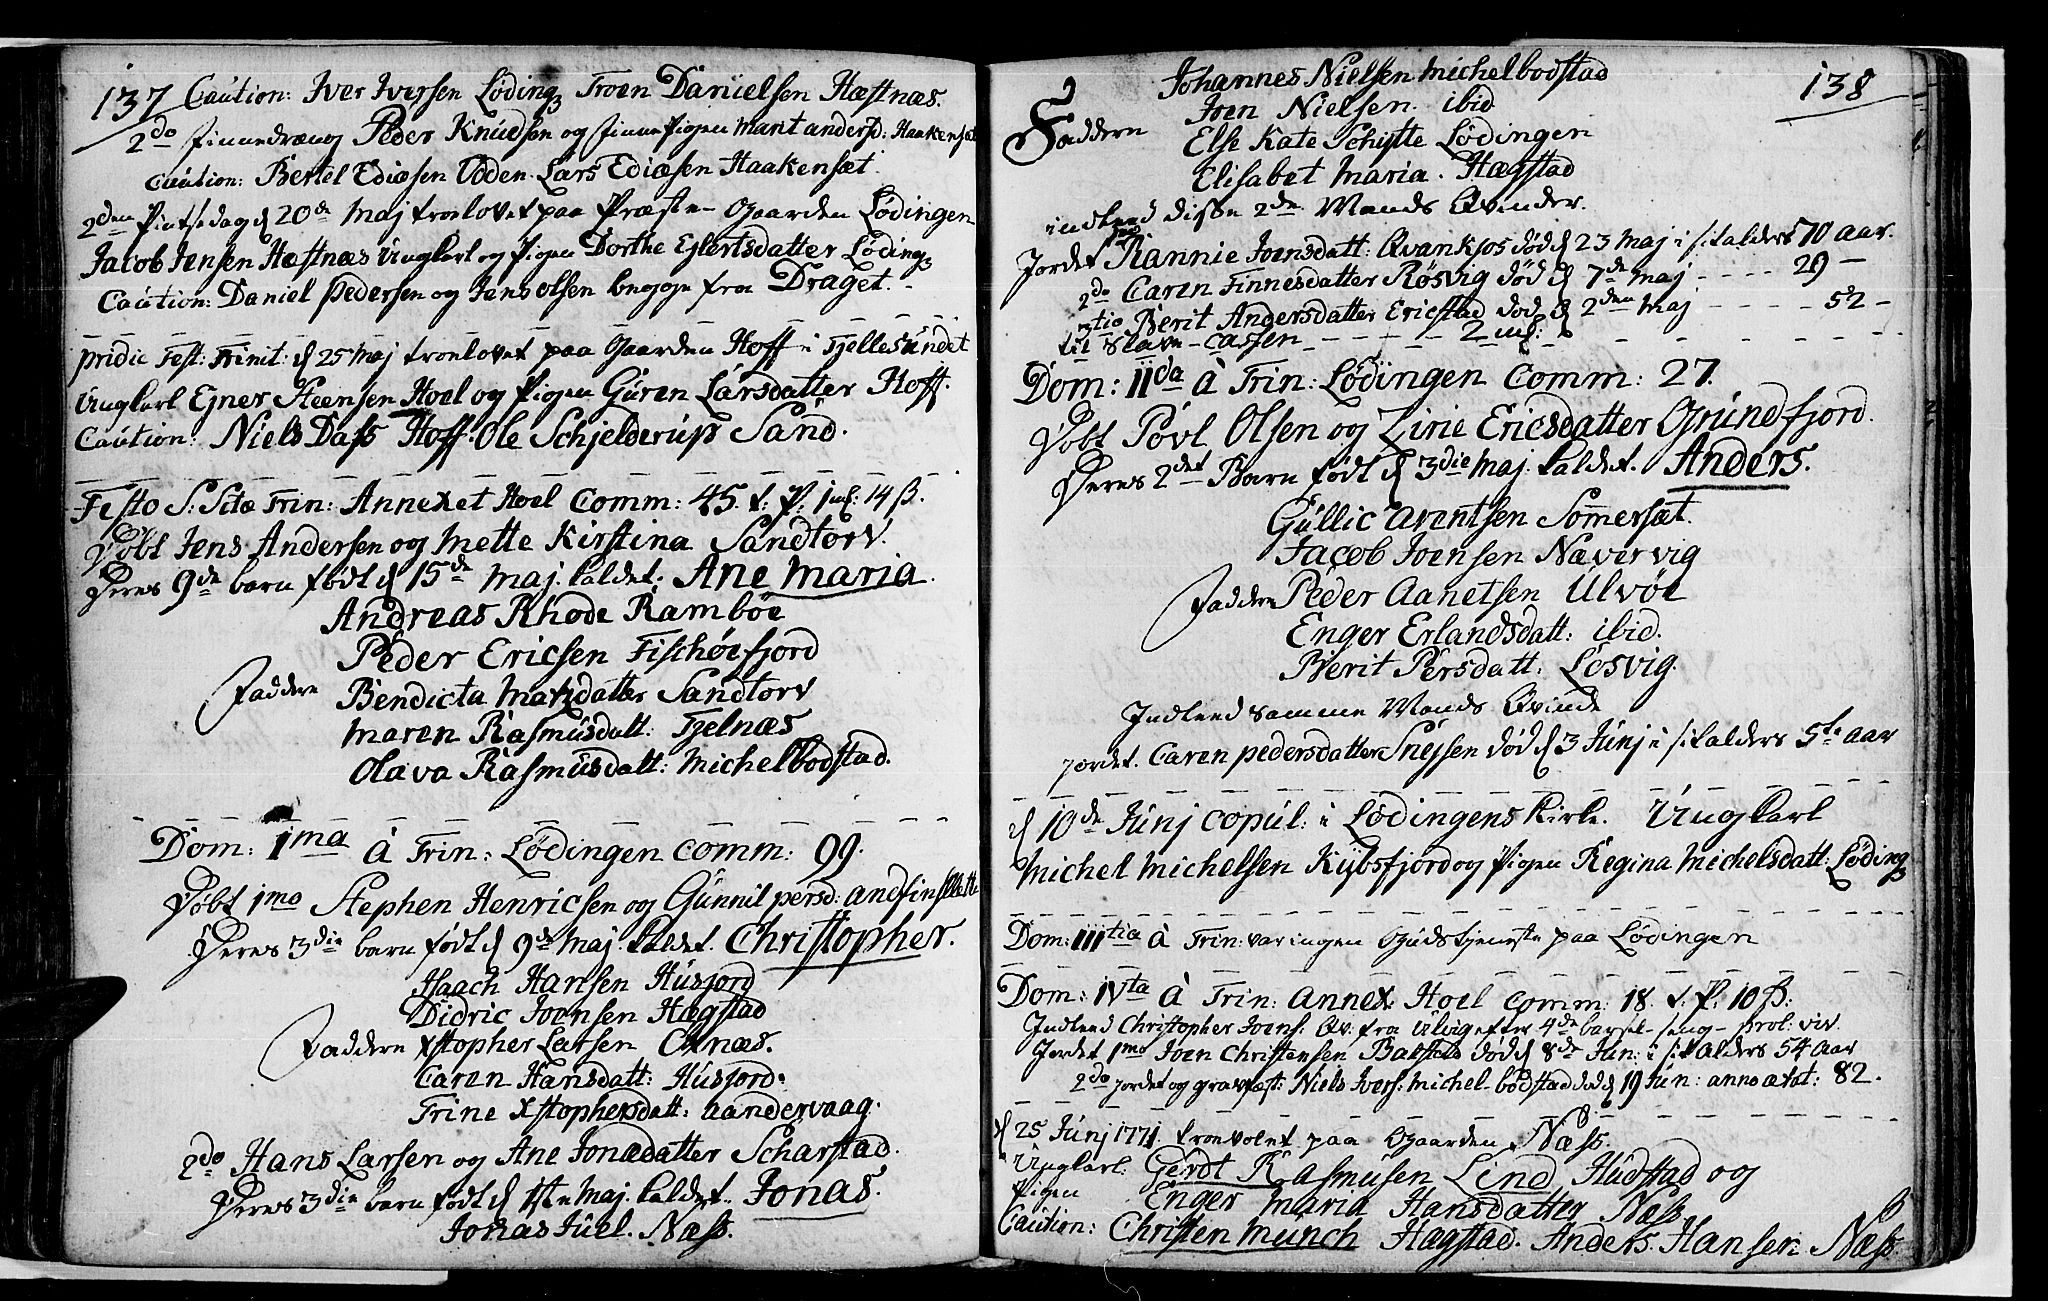 137 Caution: Iver Iversen Løding Troen Danielsen Hæstnæs.
2do finnedræng Peder Knudsen og finne Pigen Marit andersd: Haakensæt
Caution: Bertel Ediæsen Vdden. Lars Ediæsen Haakensæt.
2den Pintsedag d 20de Maj troelovet paa Præste-Gaarden Lødingen
Jacob Jensen Hæstnæs Ungkarl og Pigen Dorthe Ejlertsdatter Løding
Caution: Daniel Pedersen og Jens olsen begge fra Draget.
pridie Fest: Trinit: d 25 Maj troelovet paa Gaarden Hoff i Tjellesundet
Ungkarl Ejner Steensen Hoel og Pigen Guren Larsdatter Hoff.
Caution: Niels Dass Hoff. Ole Schjelderup Sand.
Festo S: Sctæ Trin: Annexet Hoel Comm: 45. t. P. 1 ml: 14 ß.
Døbt Jens Andersen og Mette Kirstina Sandtorv.
Deres 9de barn født d 15de Maj. kaldet. Ane Maria.
Andreas Rhode Ramböe
Peder Ericsen Fischöefjord
Faddern Bendicta Matzdatter Sandtorv
Maren Rasmusdatt: Tjelnæs
Olava Rasmusdatt: Michelbodstad.
Dom: 1ma à Trin: Lødingen Comm: 99.
Døbt 1mo Stephen Henricsen og Gunnil persd: andfinslette
Deres 3die barn født d 9de Maj. kaldet. Christopher.
Haach Hansen Husjord
Didric Joensen Hægstad
Faddern Xstopher Larsen Ocnæs.
Caren Hansdatt: Husjord.
Trine Xstophersdatt: aandervaag.
2do Hans Larsen og Ane Jonædatter Scharstad.
Deres 3die barn født d 1ste Maj. kaldet. Jonas.
Jonas Juel. Næss.
Johannes Nielsen Michelbodstad 138
Joen Nielsen. ibid
Faddern Else Kate Schytte Lødingen
Elisabet Maria. Hægstad
indleed disse 2de Mands Qvinder.
Jordet Rannie Joensdatt: Qvankjos død d 23 Maj i sit alders 70 aar.
2do Caren Finnesdatter Røsvig død d 7de Maj. - - - - 29 -
3tio Berit Andersdatter Ericstad død d 2den Maj - - - - - 52 -
til Slave-Cassen - - - - - 2 ml:
Dom: IIda à Trin: Lødingen Comm: 27.
Døbt Povl Olsen og Zirie Ericsdatter Grundfjord.
Deres 2det Barn født d 3die Maj. kaldet. Anders.
Gullic Arentsen Somersæt.
Jacob Joensen Nævervig
Faddern Peder Aanetsen Ulvöe
Enger Erlandsdatt: ibid.
Berit Persdatt: Løsvig.
Indleed samme Mands Qvinde
jordet. Caren pedersdatter Snejsen død d 3 Junj i sit alders 5te aar
d 10de Junj Copul: i Lødingens Kirke. Ungkarl
Michel Michelsen Kybsfjord og Pigen Regina Michelsdatt: Løding
Dom: IIItia à Trin: var ingen Gudstjeneste paa Lødingen
Dom: IVta à Trin: Annex Hoel Comm: 18. t. P. 10 ß.
Indleed Christopher Joens: Qv: fra Ulvig efter 4de barsel-seng- prol: viv.
Jordet 1mo Joen Christensen Balstad død d 8de Jun: i sit alders 54 aar
2do jordet og gravfæst: Niels Ivers: Michel-bodstad død d 19 Jun: anno ætat: 82.
d 25 Junj 1771 troevolet paa Gaarden Næss.
Ungkarl: Gerdt Rasmusen Lind Hudstad og
Pigen Enger Maria Hansdatter Næss
Caution: Christen Munch Hægstad. Anders Hansen Næss